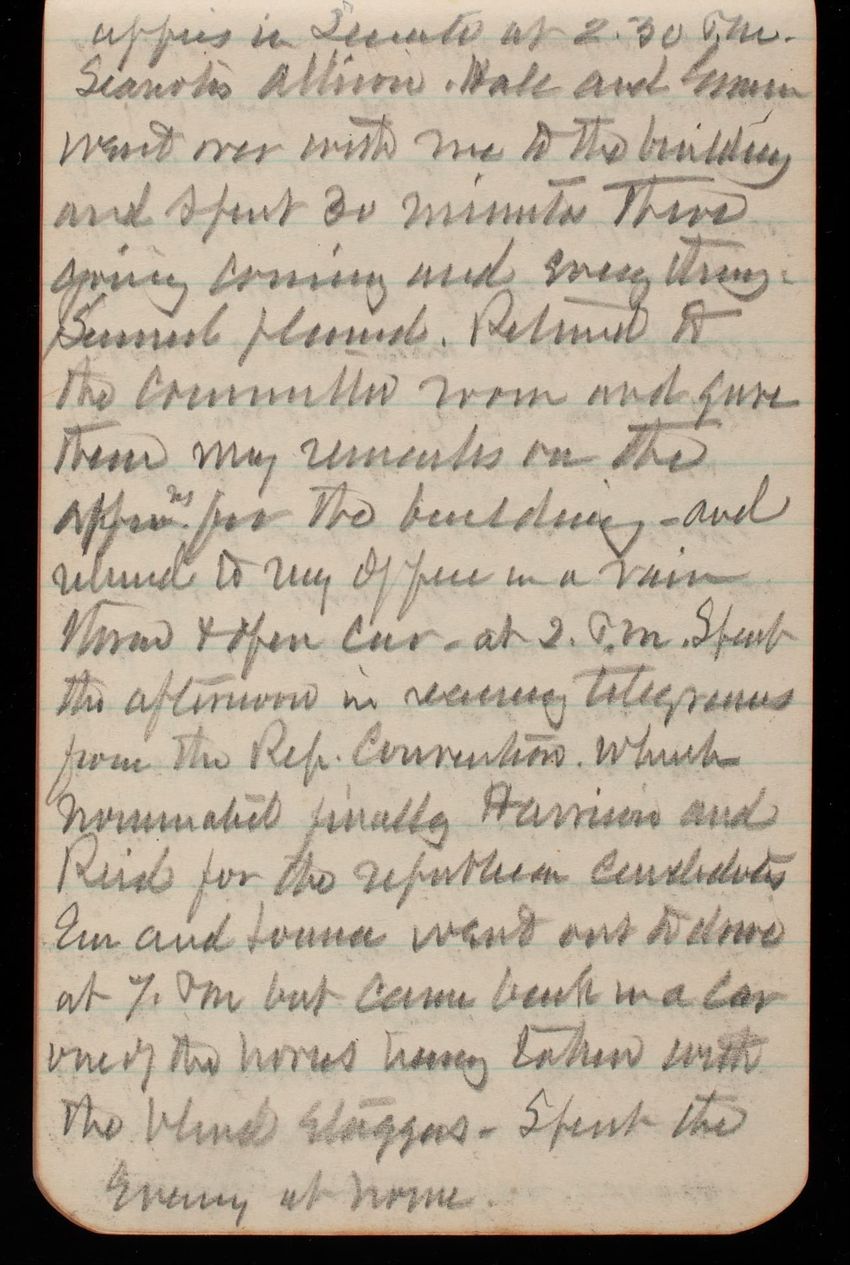 apprs in Senate at 2.30 P.M.
Senators Allison. Hale and Gorman
went over with me to the building
and spent 30 minutes there
going coming and every thing.
Seemed pleased. Returned to
the Committee room and gave
them my remarks on the
appro.ns for the building - and
returned to my office in a rain
storm & open car - at 2. P.M. Spent
the afternoon in receiving telegrams
from the Rep. Convention. which
nominated finally Harrison and
Reid for the republican candidates
Em and went out to drive
at 7. PM but came back in a car
one of the horses being taken with
the blind staggers - Spent the
Evening at home.